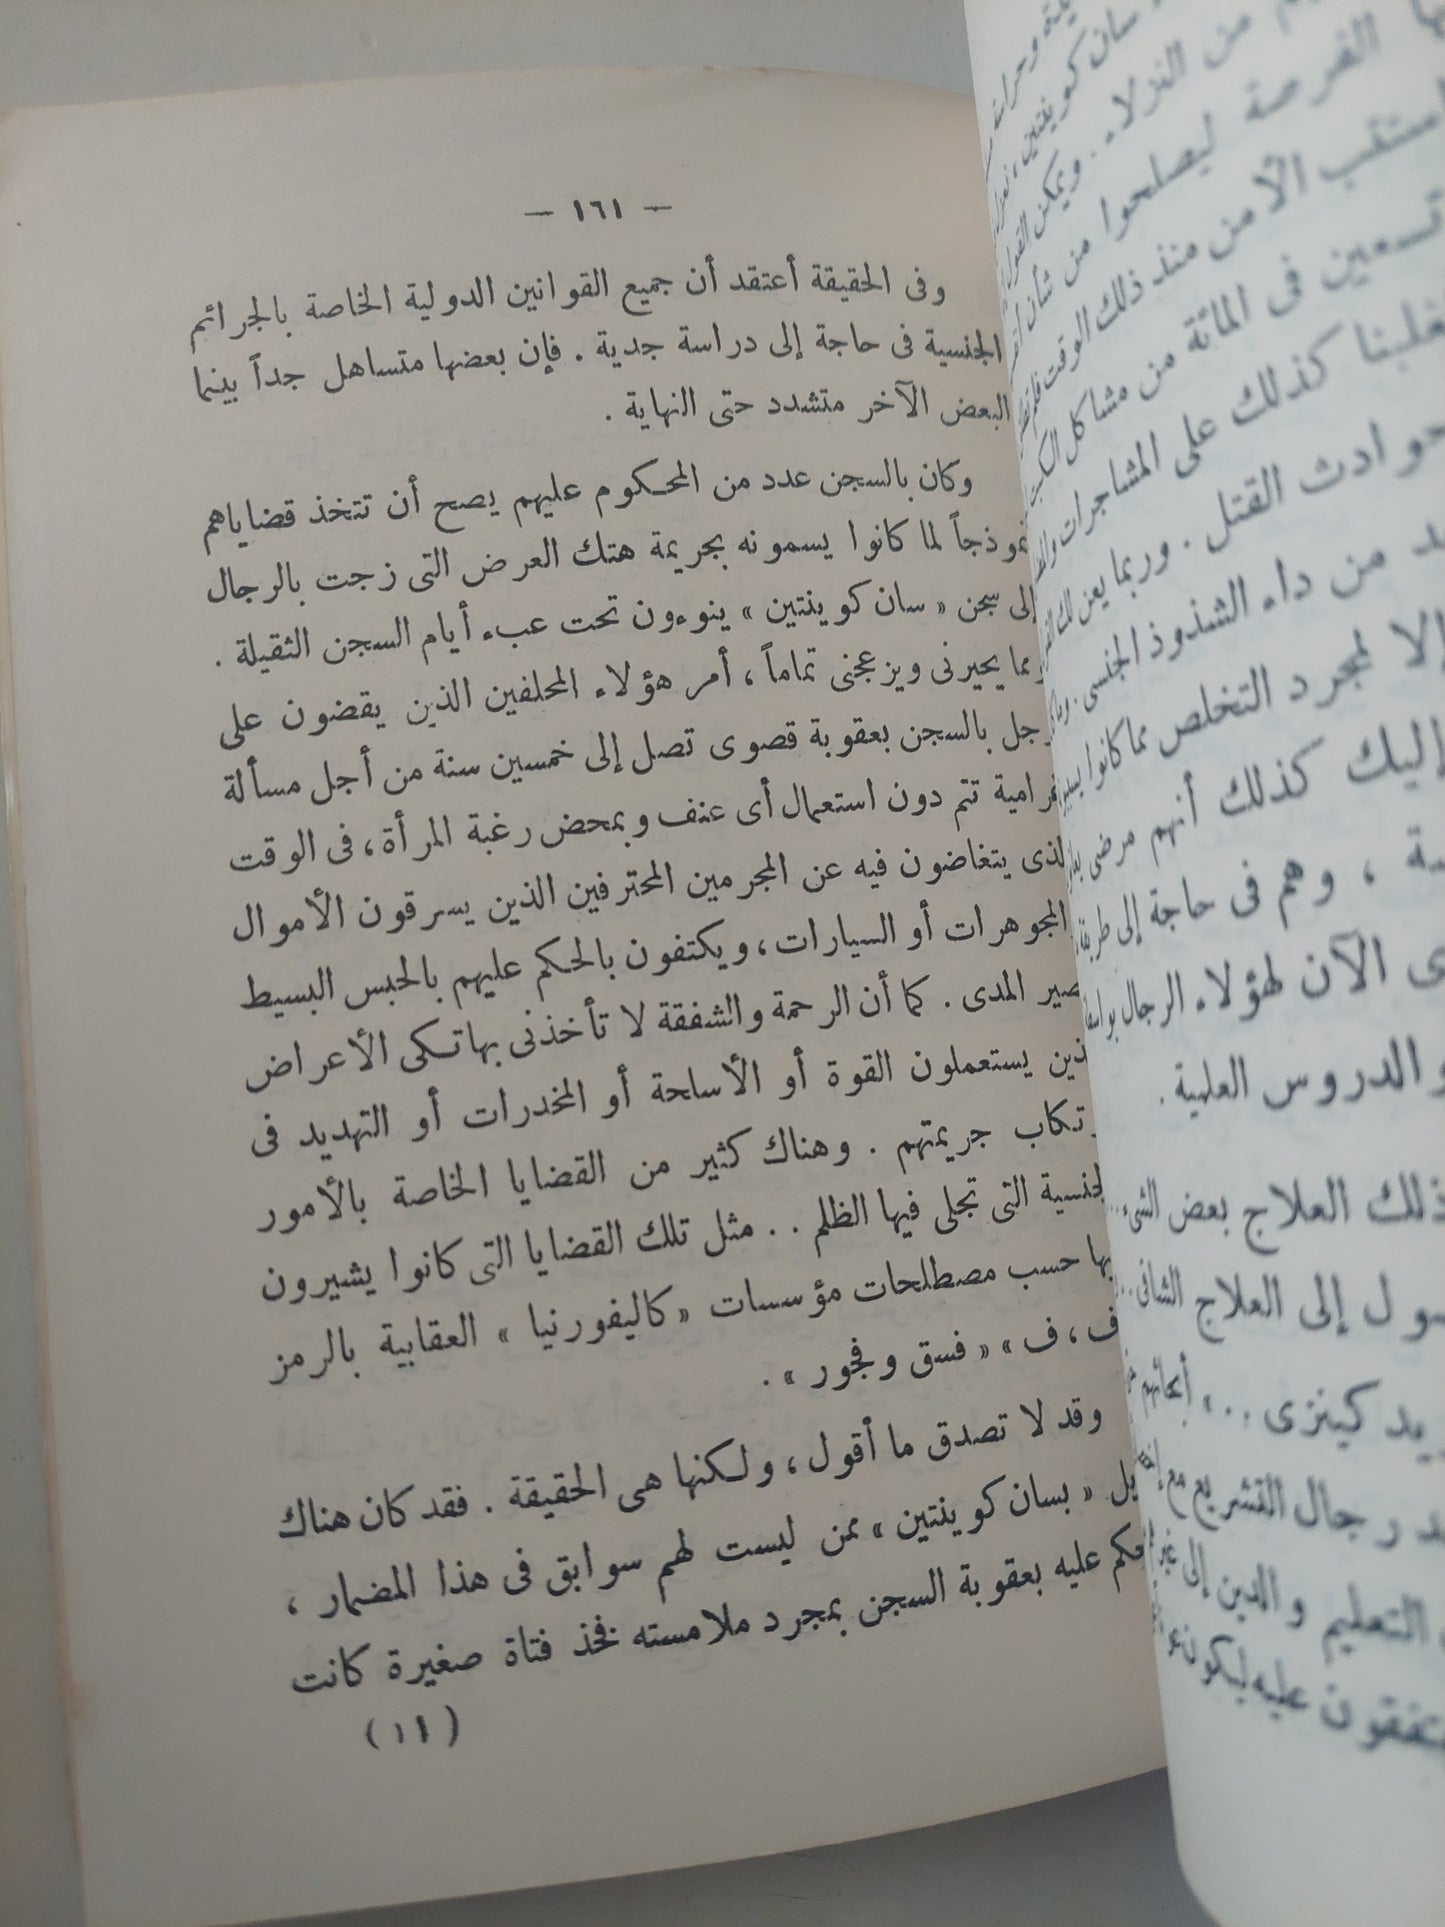 — ١٦١ —
وفى الحقيقة أعتقد أن جميع القوانين الدولية الخاصة بالجرائم
الجنسية فى حاجة إلى دراسة جدية . فإن بعضها متساهل جداً بينما
البعض الآخر متشدد حتى النهاية .
وكان بالسجن عدد من المحكوم عليهم يصح أن تتخذ قضاياهم
نموذجاً لما كانوا يسمونه بجريمة هتك العرض التى زجت بالرجال
إلى سجن « سان كوينتين » ينوءون تحت عبء أيام السجن الثقيلة .
مما يحيرنى ويزعجنى تماماً ، أمر هؤلاء المحلفين الذين يقضون على
رجل بالسجن بعقوبة قصوى تصل إلى خمسين سنة من أجل مسألة
غرامية تتم دون استعمال أى عنف وبمحض رغبة المرأة ، فى الوقت
لذى يتغاضون فيه عن المجرمين المحترفين الذين يسرقون الأموال
المجوهرات أو السيارات ، ويكتفون بالحكم عليهم بالحبس البسيط
صير المدى . كما أن الرحمة والشفقة لا تأخذنى بهاتكى الأعراض
ذين يستعملون القوة أو الأسلحة أو المخدرات أو التهديد فى
رتكاب جريمتهم . وهناك كثير من القضايا الخاصة بالأمور
لجنسية التى تجلى فيها الظلم . . مثل تلك القضايا التى كانوا يشيرون
بها حسب مصطلحات مؤسسات « كاليفورنيا » العقابية بالرمز
ف ، ف » « فسق وفجور » .
وقد لا تصدق ما أقول ، ولكنها هى الحقيقة . فقد كان هناك
يل « بسان كوينتين » ممن ليست لهم سوابق فى هذا المضمار ،
حكم عليه بعقوبة السجن بمجرد ملامسته فخذ فتاة صغيرة كانت
( ١١ )
من النزلاء . ويمكن القول
الفرصة ليصلحوا من شأن
ستتب الأمن منذ ذلك الوقت
تسعين فى المائة من مشاكل
كذلك على المشاجرات
حوادث القتل . وربما
من داء الشذوذ الجنسى .
إلا لمجرد التخلص مما كانوا
إليك كذلك أنهم مرضى
، وهم فى حاجة إلى
الآن لهؤلاء الرجال
والدروس العلمية .
ذلك العلاج بعض الشىء ..
إلى العلاج الشافى ..
كينزى .. » أبحاثهم
رجال التشريع مع
التعليم والدين إلى
عليه ليكون